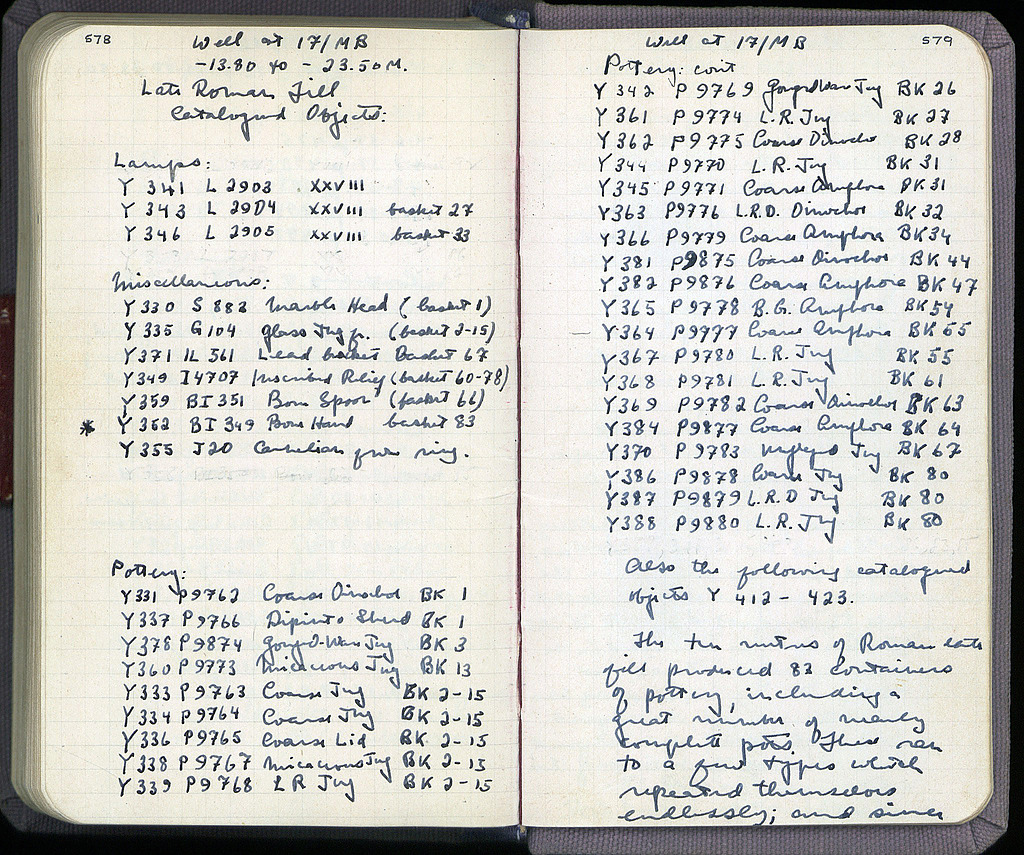 578
Well at 17/MB
-13.80 to - 23.50M.
Late Roman Fill
Catalogued Objects:
Lamps:
Y 341 L 2903 XXVIII
Y 343 L 2904 XXVIII basket 27
Y 346 L 2905 XXVIII basket 33
Miscellaneous:
Y 330 S 882 Marble Head (basket 1)
Y 335 G 104 Glass Jug fr. (basket 2-15)
Y 371 IL 561 Lead bucket Basket 67
Y 349 I 4707 Inscribed Relief (basket 60-78)
Y 359 BI 351 Bone Spoon (basket 66)
* Y 352 BI 349 Bone Hand basket 83
Y 355 J20 Carnelian from ring.
Pottery:
Y 331 P9762 Coarse Oinochoe BK 1
Y 337 P9766 Dipinto Sherd BK 1
Y 378 P9874 Gouged-Ware Jug BK 3
Y 360 P9773 Micaceous Jug BK 13
Y 333 P9763 Coarse Jug BK 2-15
Y 334 P9764 Coarse Jug BK 2-15
Y 336 P9765 Coarse Lid BK 2-15
Y 338 P9767 Micaceous Jug BK 2-15
Y 339 P9768 L R Jug BK 2-15
Well at 17/MB
579
Pottery: cont
Y 342 P9769 Gouged Ware Jug BK 26
Y 361 P9774 L.R. Jug BK 27
Y 362 P9775 Coarse Oinochoe BK 28
Y 344 P9770 L.R. Jug BK 31
Y 345 P9771 Coarse Amphora BK 31
Y 363 P9776 L.R.D. Oinochoe BK 32
Y 366 P9779 Coarse Amphora BK 34
Y 381 P9875 Coarse Oinochoe BK 44
Y 382 P9876 Coarse Amphora BK 47
Y 365 P9778 B.G. Amphora BK 54
Y 364 P9777 Coarse Amphora BK 55
Y 367 P9780 L.R. Jug BK 55
Y 368 P9781 L.R. Jug BK 61
Y 369 P9782 Coarse Oinochoe BK 63
Y 384 P9877 Coarse Amphora BK 64
Y 370 P9783 Jug BK 67
Y 386 P9878 Coarse Jug BK 80
Y 387 P9879 L.R.D Jug BK 80
Y 388 P9880 L.R. Jug BK 80
Also the following catalogued
objects Y 412 - 423.
The ten metres of Roman late
fill produced 83 containers
of pottery, including a
great number of nearly
complete pots. These ran
to a few types which
repeated themselves
endlessly; and since